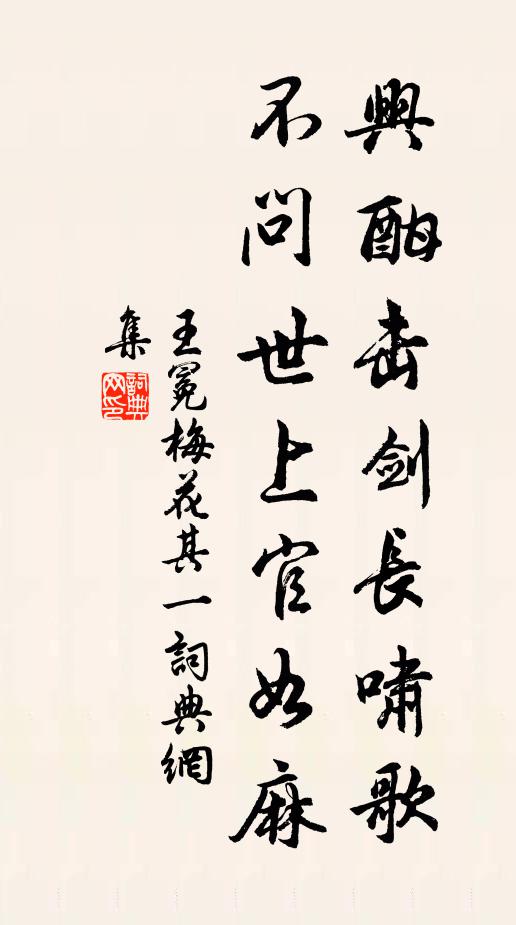 興酣击剑長啸歌
不问世上官如麻
王冕梅花其一詞典網
集
詞典
网印